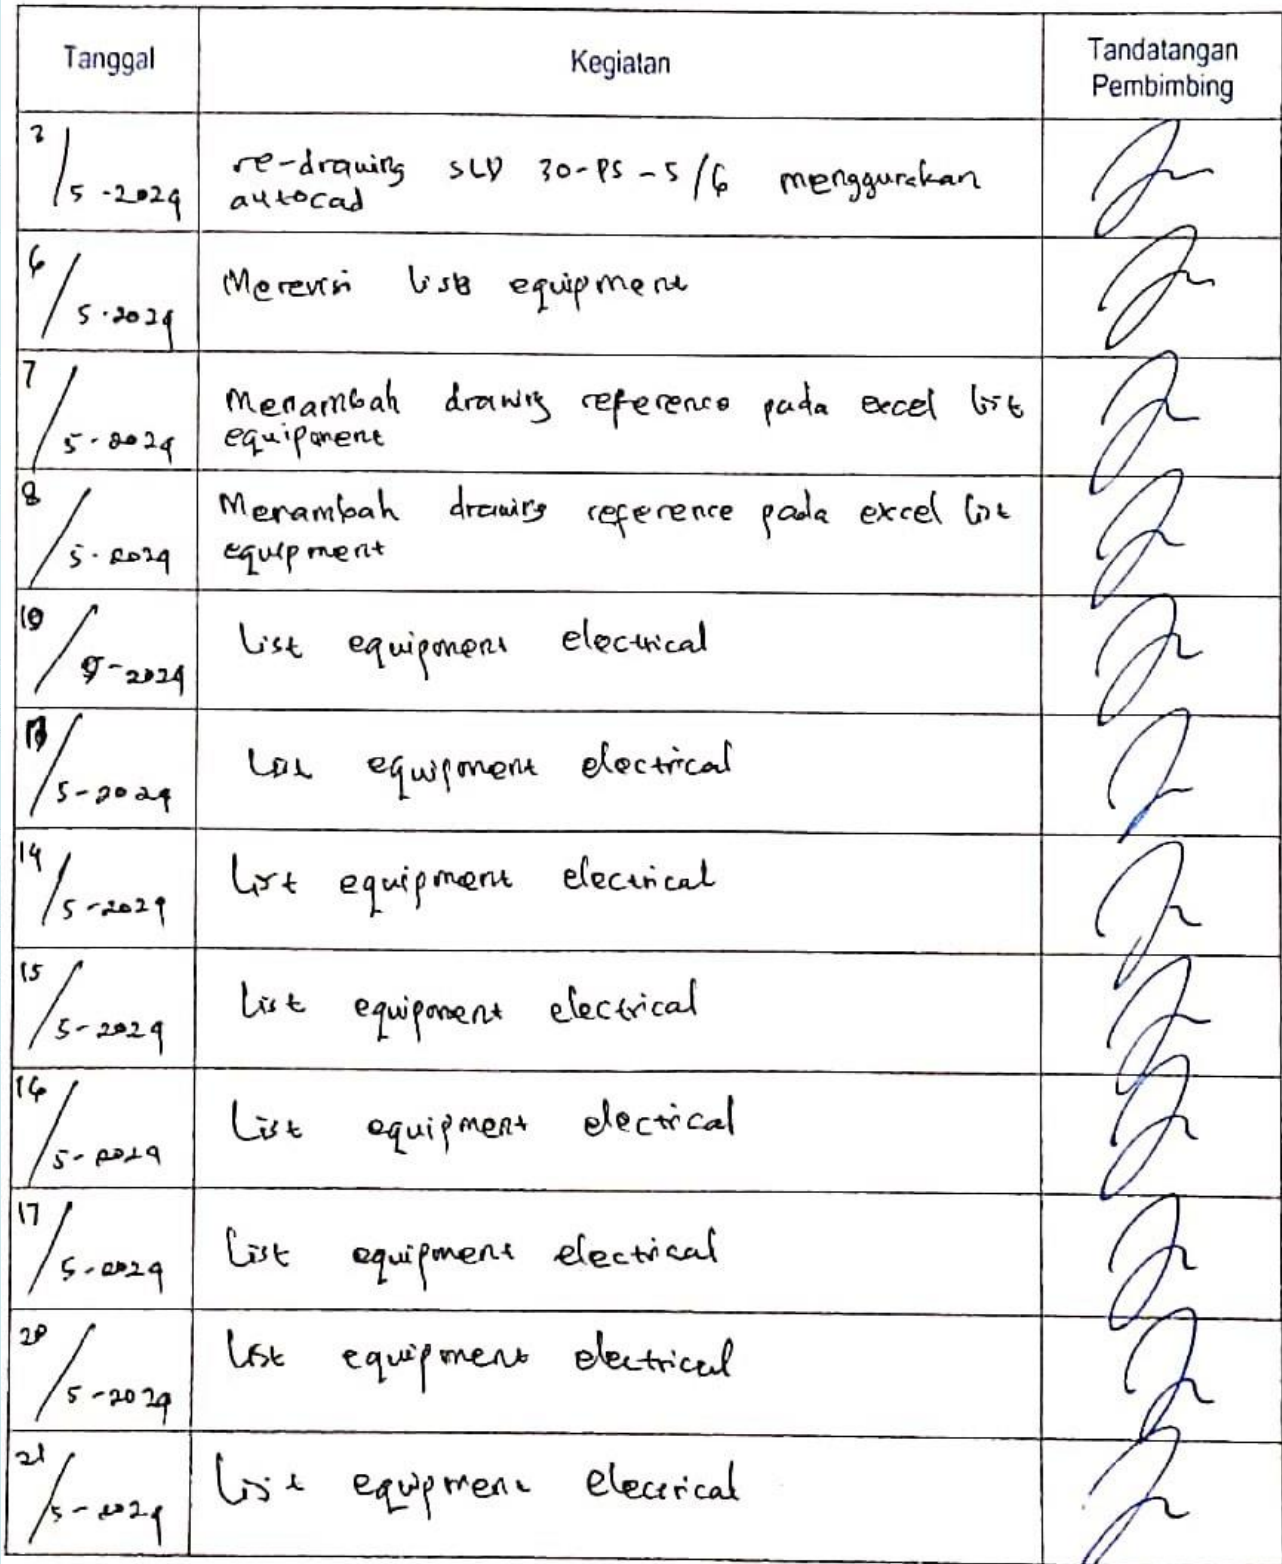 Tanggal
Kegiatan
Tandatangan
Pembimbing
3/5-2024
re-drawing SLD 30-PS-5/6 menggunakan
autocad
6/5-2024
Merevisi list equipment
7/5-2024
Menambah drawing reference pada excel list
equipment
8/5-2024
Menambah drawing reference pada excel list
equipment
10/5-2024
List equipment electrical
/5-2024
List equipment electrical
14/5-2024
List equipment electrical
15/5-2024
List equipment electrical
16/5-2024
List equipment electrical
17/5-2024
List equipment electrical
20/5-2024
List equipment electrical
21/5-2024
List equipment electrical